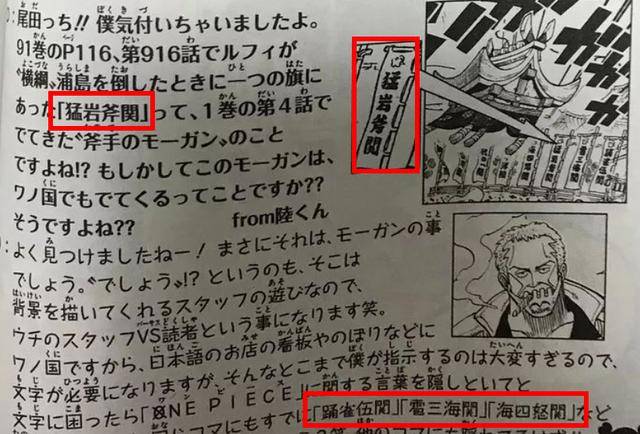 尾田っち!! 僕気付いちゃいましたよ。
91巻のP116、第916話でルフィが
〝横綱〟浦島を倒したときに一つの旗に
あった「猛岩斧関」って、1巻の第4話で
でてきた〝斧手のモーガン〟のこと
ですよね!? もしかしてこのモーガンは、
ワノ国でもでてくるってことですか??
そうですよね??
from陸くん
猛岩斧関
:よく見つけましたねー! まさにそれは、モーガンの事
でしょう。〝でしょう〟!? というのも、そこは
背景を描いてくれるスタッフの遊びなので、
ウチのスタッフVS読者という事になります笑。
ワノ国ですから、日本語のお店の看板やのぼりなどに
文字が必要になりますが、そんなとこまで僕が指示するのは大変すぎるので、
文字に困ったら「ONE PIECE」に関する言葉を隠しといてと
コマにもすでに「踊雀伍関」「雷三海関」「海四怒関」など